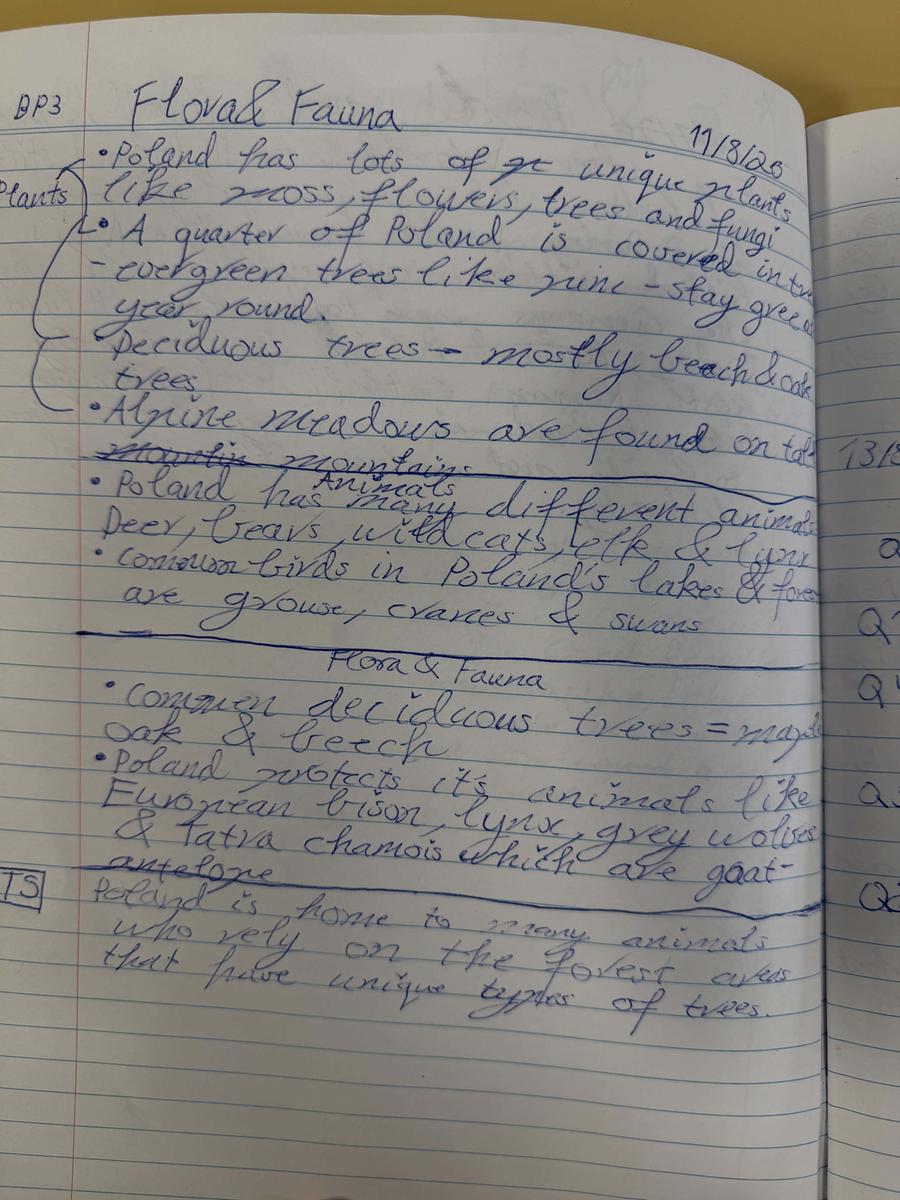 BP3 Flora & Fauna
11/8/26
• Poland has lots of unique plants
Plants like moss, flowers, trees and fungi
• A quarter of Poland is covered in tre
- evergreen trees like pine - stay green
year round.
• Deciduous trees - mostly beech & oak
trees
• Alpine meadows are found on tall
mountains
Animals
• Poland has many different animals
Deer, bears, wildcats, elk & lynx
• Common birds in Poland's lakes & fores
are grouse, cranes & swans
Flora & Fauna
• Common deciduous trees = maple
oak & beech
• Poland protects it's animals like
European bison, lynx, grey wolves
& Tatra chamois which are goat-
antelope
TS Poland is home to many animals
who rely on the forest areas
that have unique types of trees.
13/8
Q
Q
Q
Q